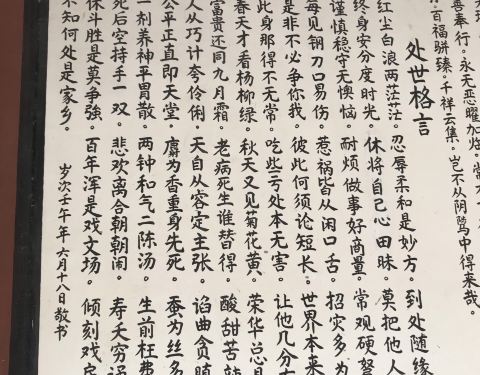 善奉行。永天恶曜加
百福骈臻。千祥云集。岂不从阴骘中得来哉。
处世格言
红尘白浪两茫茫。忍辱柔和是妙方。到处随缘
终身安分度时光。休将自己心田昧。莫把他人
谨慎稳守无懊恼。耐烦做事好商量。常观硬弩
每见钢刀口易伤。惹祸皆从闲口舌。招灾多为
是非不必争你我。彼此何须论短长。世界本来
此身那得不无常。吃些亏处本无害。让他几分
春天才看杨柳绿。秋天又见菊花黄。荣华总是
富贵还同九月霜。老病死生谁替得。酸甜苦
人从巧计夸伶俐。天自从容定主张。谄曲贪
公平正直即天堂。麝为香重身先死。蚕为丝多
一剂养神平胃散。两钟和气二陈汤。生前枉费
死后空持手一双。悲欢离合朝朝闹。寿夭穷
休斗胜是莫争強。百年浑是戏文场。倾刻戏
不知何处是家乡。
岁次壬午年六月十八日敬书